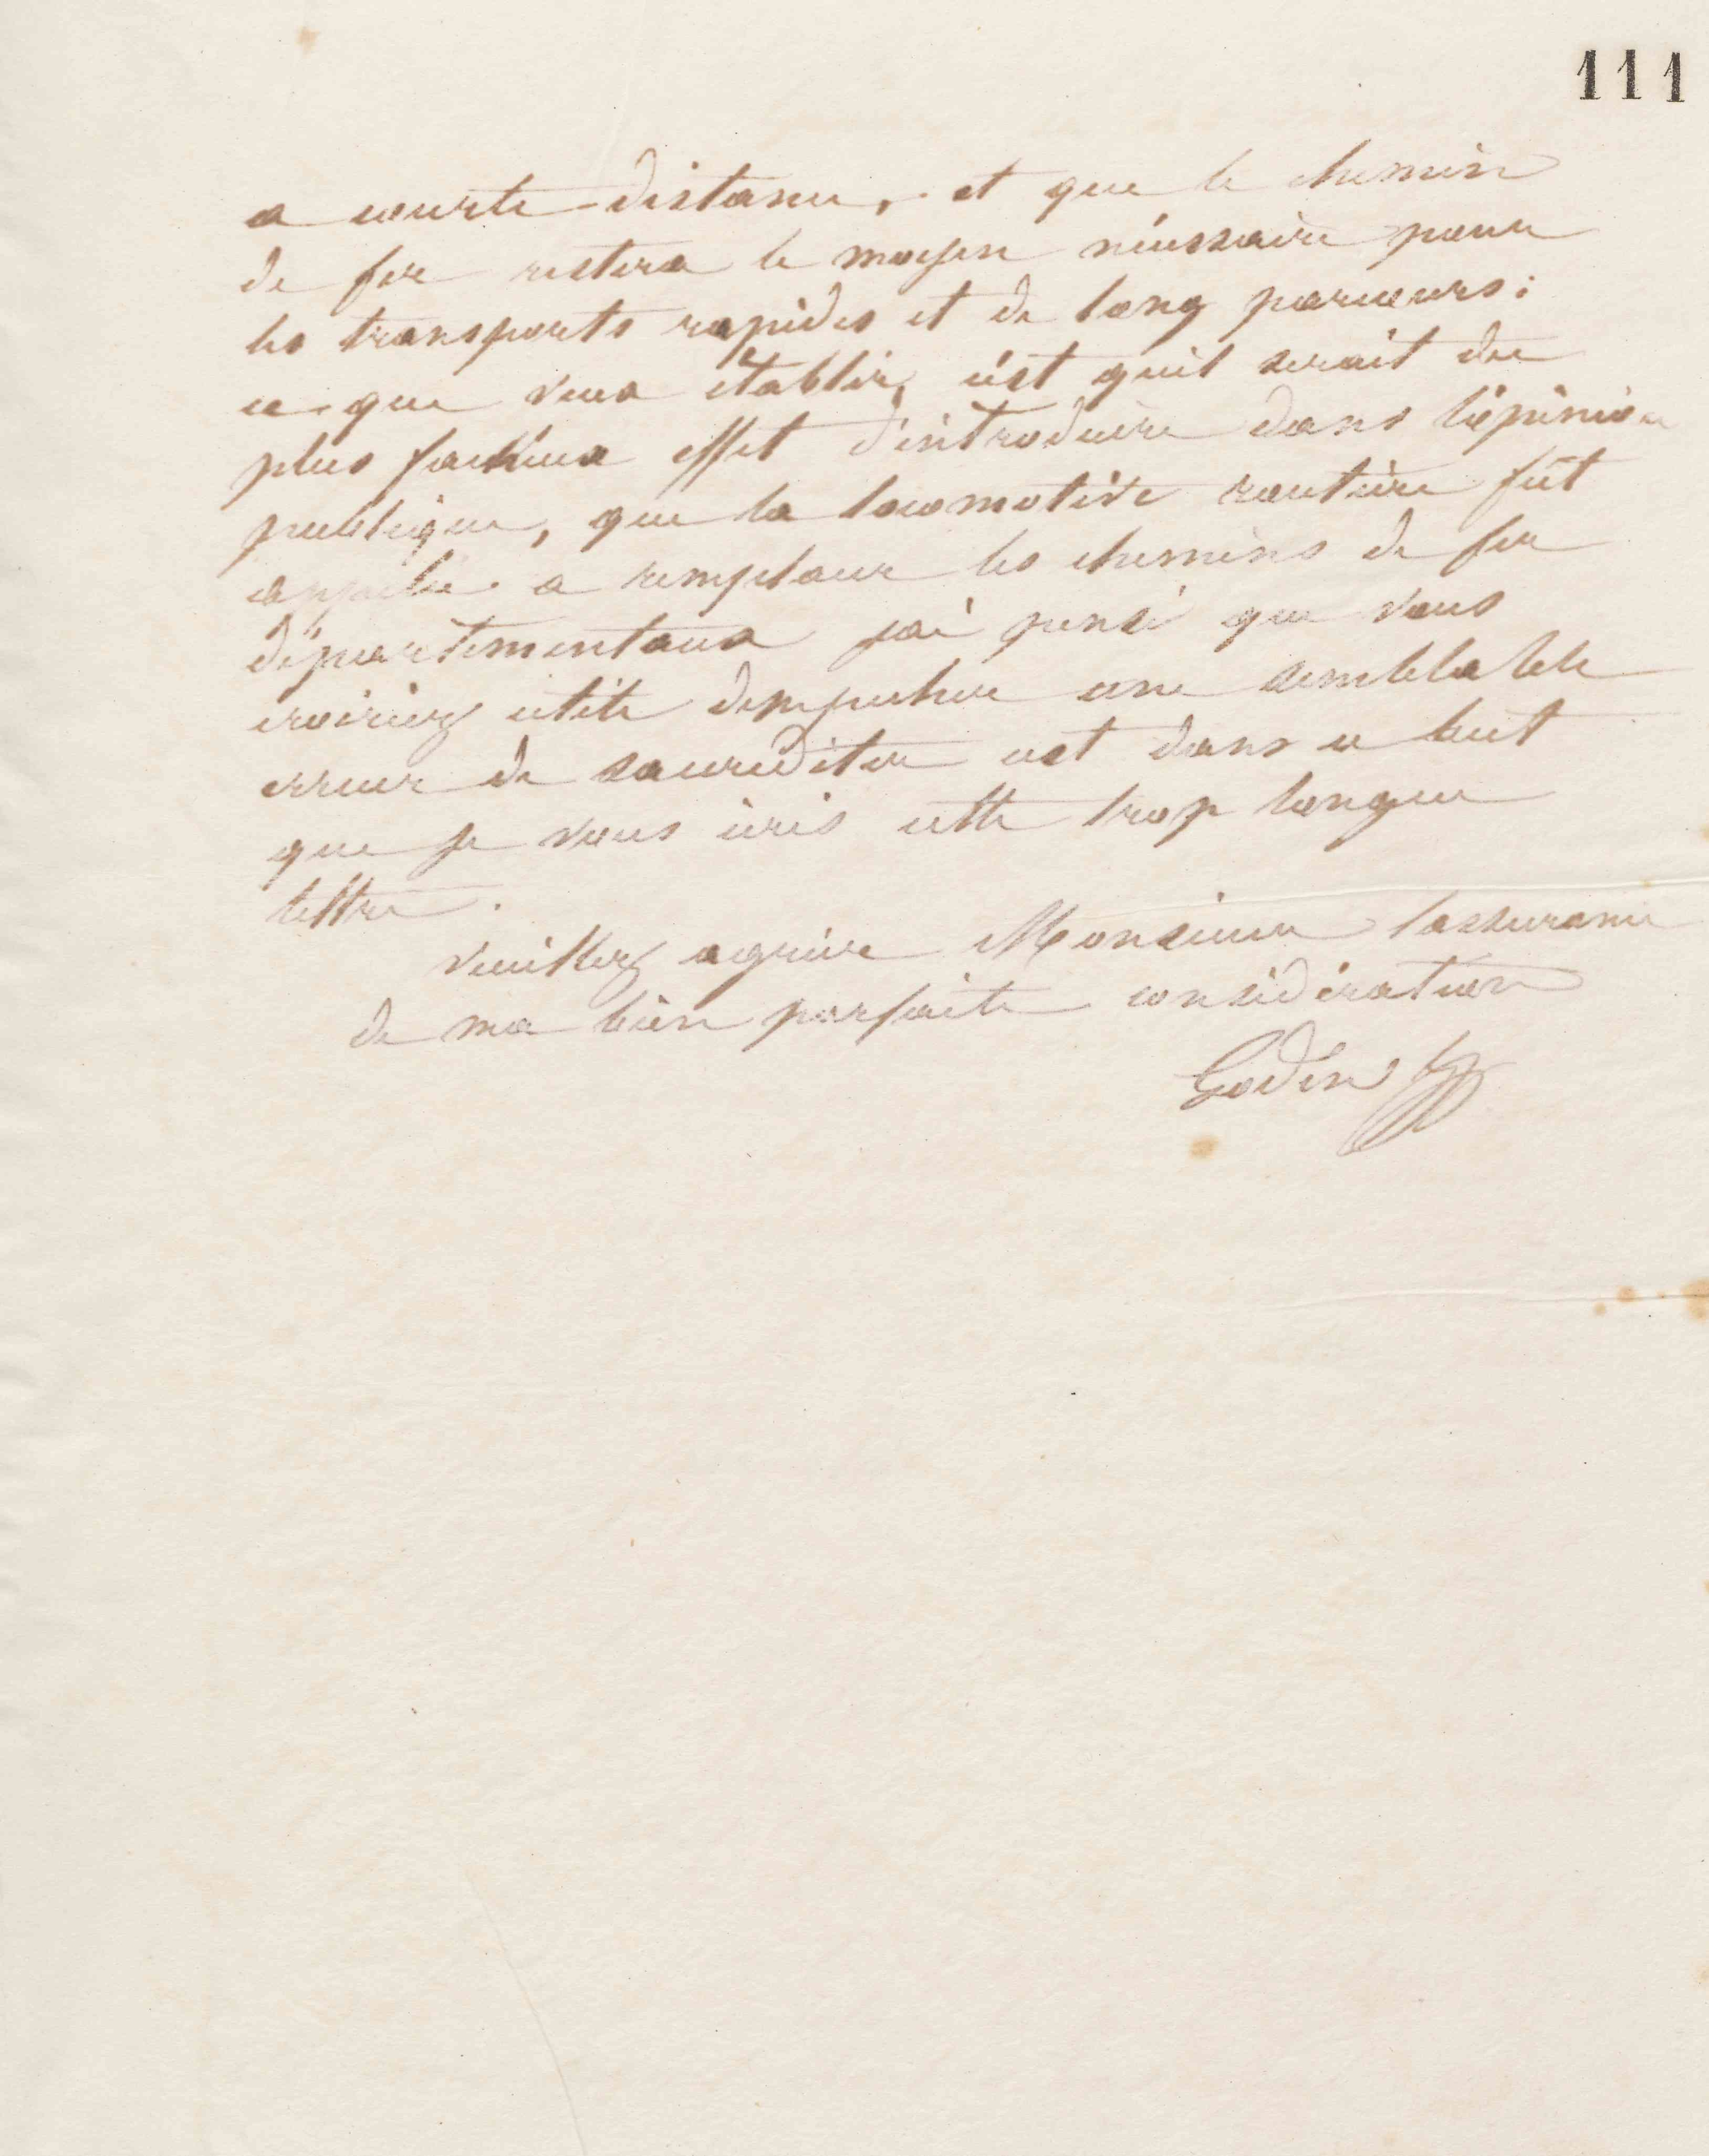 111
a courte distance, et que le chemin
de fer restera le moyen nécessaire pour
les transports rapides et de long parcours:
ce que veux établir, c'est quil serait du
plus facheux effet d'introduire dans l'opinion
publique, que la locomotive routière fût
appelée a remplacer les chemins de fer
départementaux jai pensé que vous
croiriez utile dempecher une semblable
erreur de saccréditer cest dans ce but
que je vous écris cette trop longue
lettre.
Veuillez agréer Monsieur lassurance
de ma bien parfaite considération
Godin